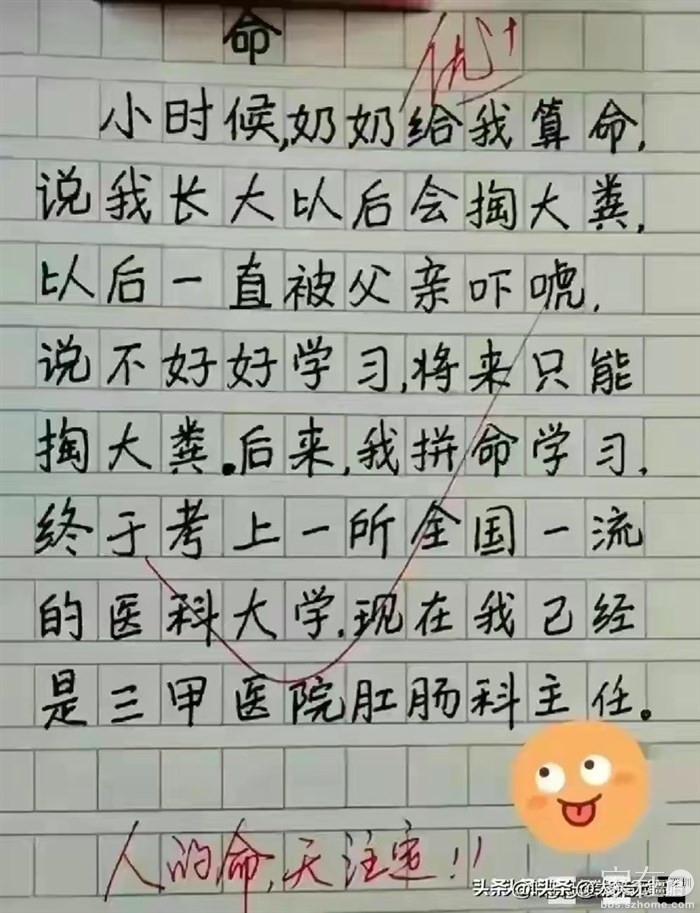 命
优+
小时候,奶奶给我算命,
说我长大以后会掏大粪,
以后一直被父亲吓唬,
说不好好学习,将来只能
掏大粪。后来,我拼命学习,
终于考上一所全国一流
的医科大学.现在我已经
是三甲医院肛肠科主任。
人的命,天注定!!
头条@
bbs.szhome.com